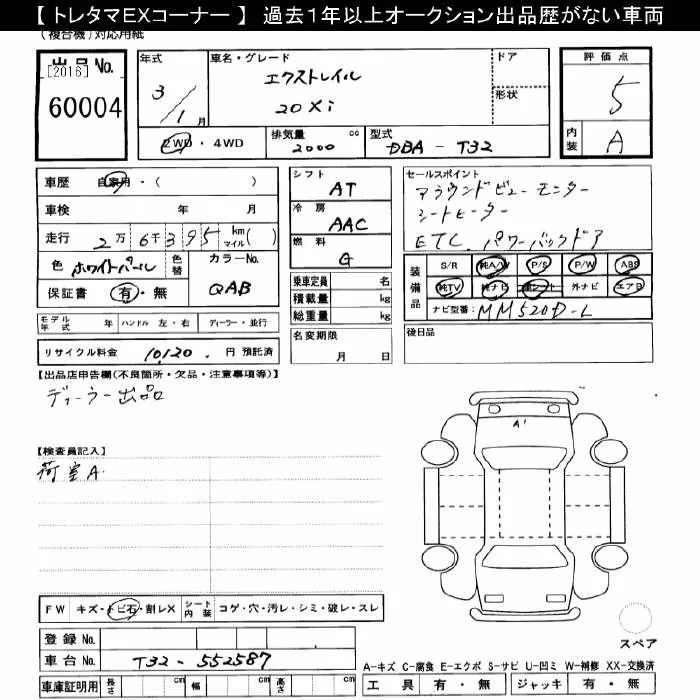 【 トレタマEXコーナー 】 過去1年以上オークション出品歴がない車両
(複合機)対応用紙
出品No. [2016] 60004
年式 3/1月
車名・グレード エクストレイル 20Xi
ドア
形状
評価点 5
内装 A
2WD・4WD
排気量 2000 cc
型式 DBA-T32
車歴 自家用・( )
車検 年 月
走行 2万6千395 km マイル( )
色 ホワイトパール 色替 カラーNo. QAB
保証書 有・無
シフト AT
冷房 AAC
燃料 G
乗車定員 名
積載量 kg
総重量 kg
名変期限 月 日
セールスポイント
アラウンドビューモニター
シートヒーター
ETC. パワーバックドア
装備品 S/R 純A/W P/S P/W ABS
純TV 純ナビ 革シート 外ナビ エアB
ナビ型番: MM520D-L
後日品
モデル年式 年 ハンドル 左・右 ディーラー・並行
リサイクル料金 10120 円 預託済
【出品店申告欄(不良箇所・欠品・注意事項等)】
ディーラー出品
【検査員記入】
荷室A
A1
FW キズ・トビ石・割レX シート内装 コゲ・穴・汚レ・シミ・破レ・スレ
登録No.
車台No. T32-552587
車庫証明用 長さ cm 幅 cm 高さ cm
スペア
A-キズ C-腐食 E-エクボ S-サビ U-凹ミ W-補修 XX-交換済
工具 有・無 ジャッキ 有・無